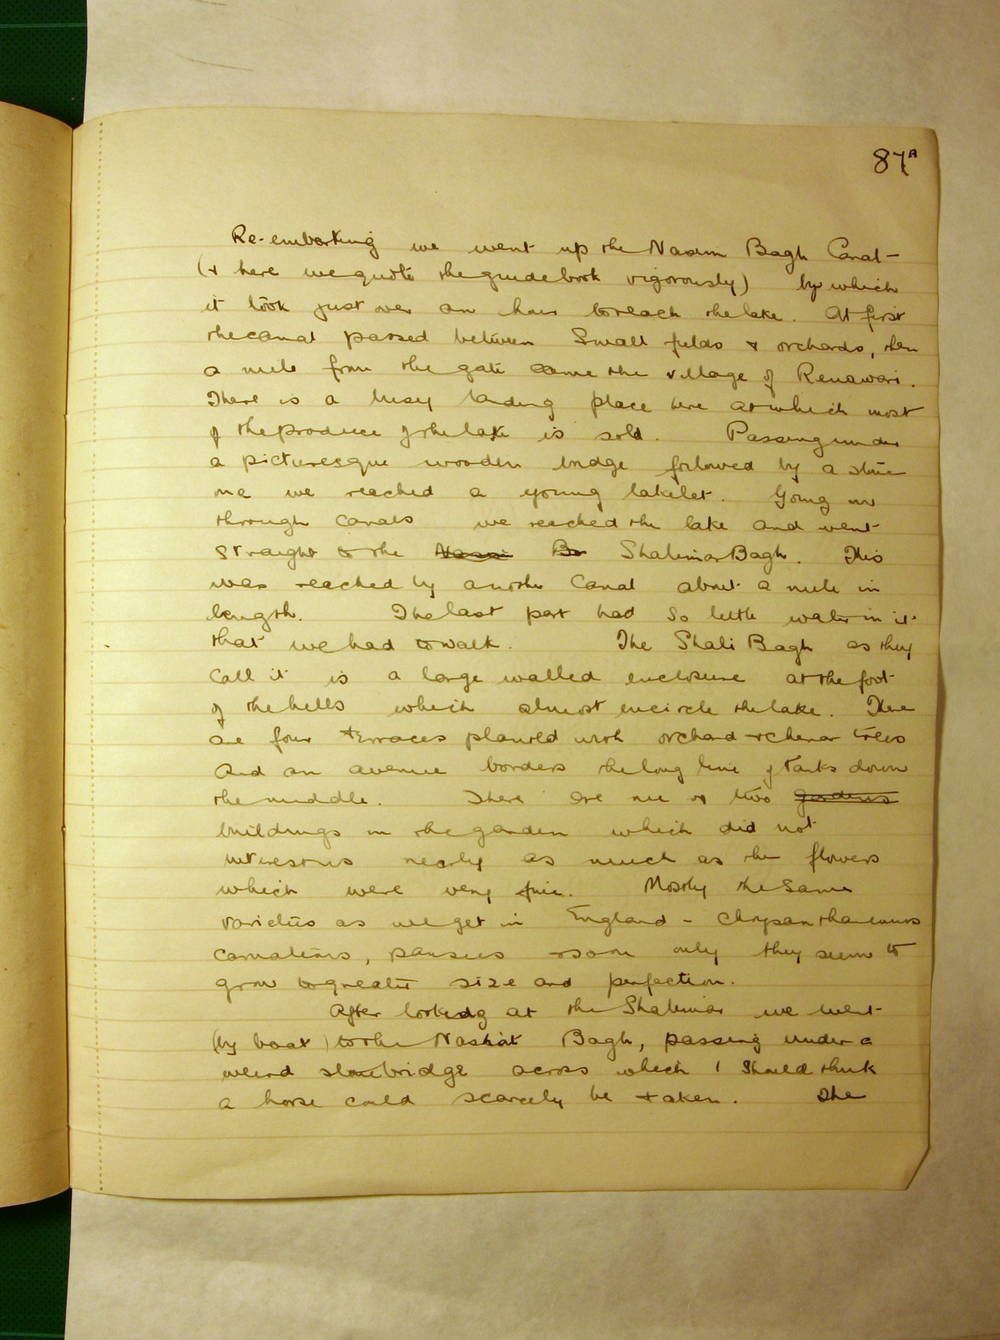 87A
Re-embarking we went up the Nasim Bagh Canal -
(& here we quote the guide book vigorously) by which
it took just over an hour to reach the lake. At first
the canal passed between small fields & orchards, then
a mile from the gate came the village of Renawari.
There is a busy landing place here at which most
of the produce of the lake is sold. Passing under
a picturesque wooden bridge followed by a stone
one we reached a young lakelet. Going on
through canals we reached the lake and went
straight to the Shalimar Bagh. This
was reached by another canal about a mile in
length. The last part had so little water in it
that we had to walk. The Shali Bagh as they
call it is a large walled enclosure at the foot
of the hills which almost encircle the lake. There
are four terraces planted with orchard & chenar trees
and an avenue borders the long line of tanks down
the middle. There are one or two gardens
buildings in the garden which did not
interest us nearly as much as the flowers
which were very fine. Mostly the same
varieties as we get in England - Chrysanthamums
carnations, pansies & so on only they seem to
grow to greater size and perfection.
After looking at the Shalimar we went
(by boat) to the Nashat Bagh, passing under a
weird stone bridge across which I should think
a horse could scarcely be taken. The